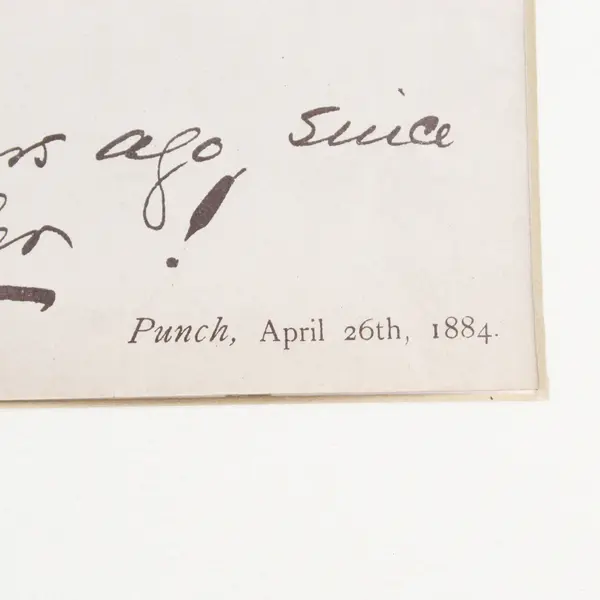 ago, since
!
Punch, April 26th, 1884.